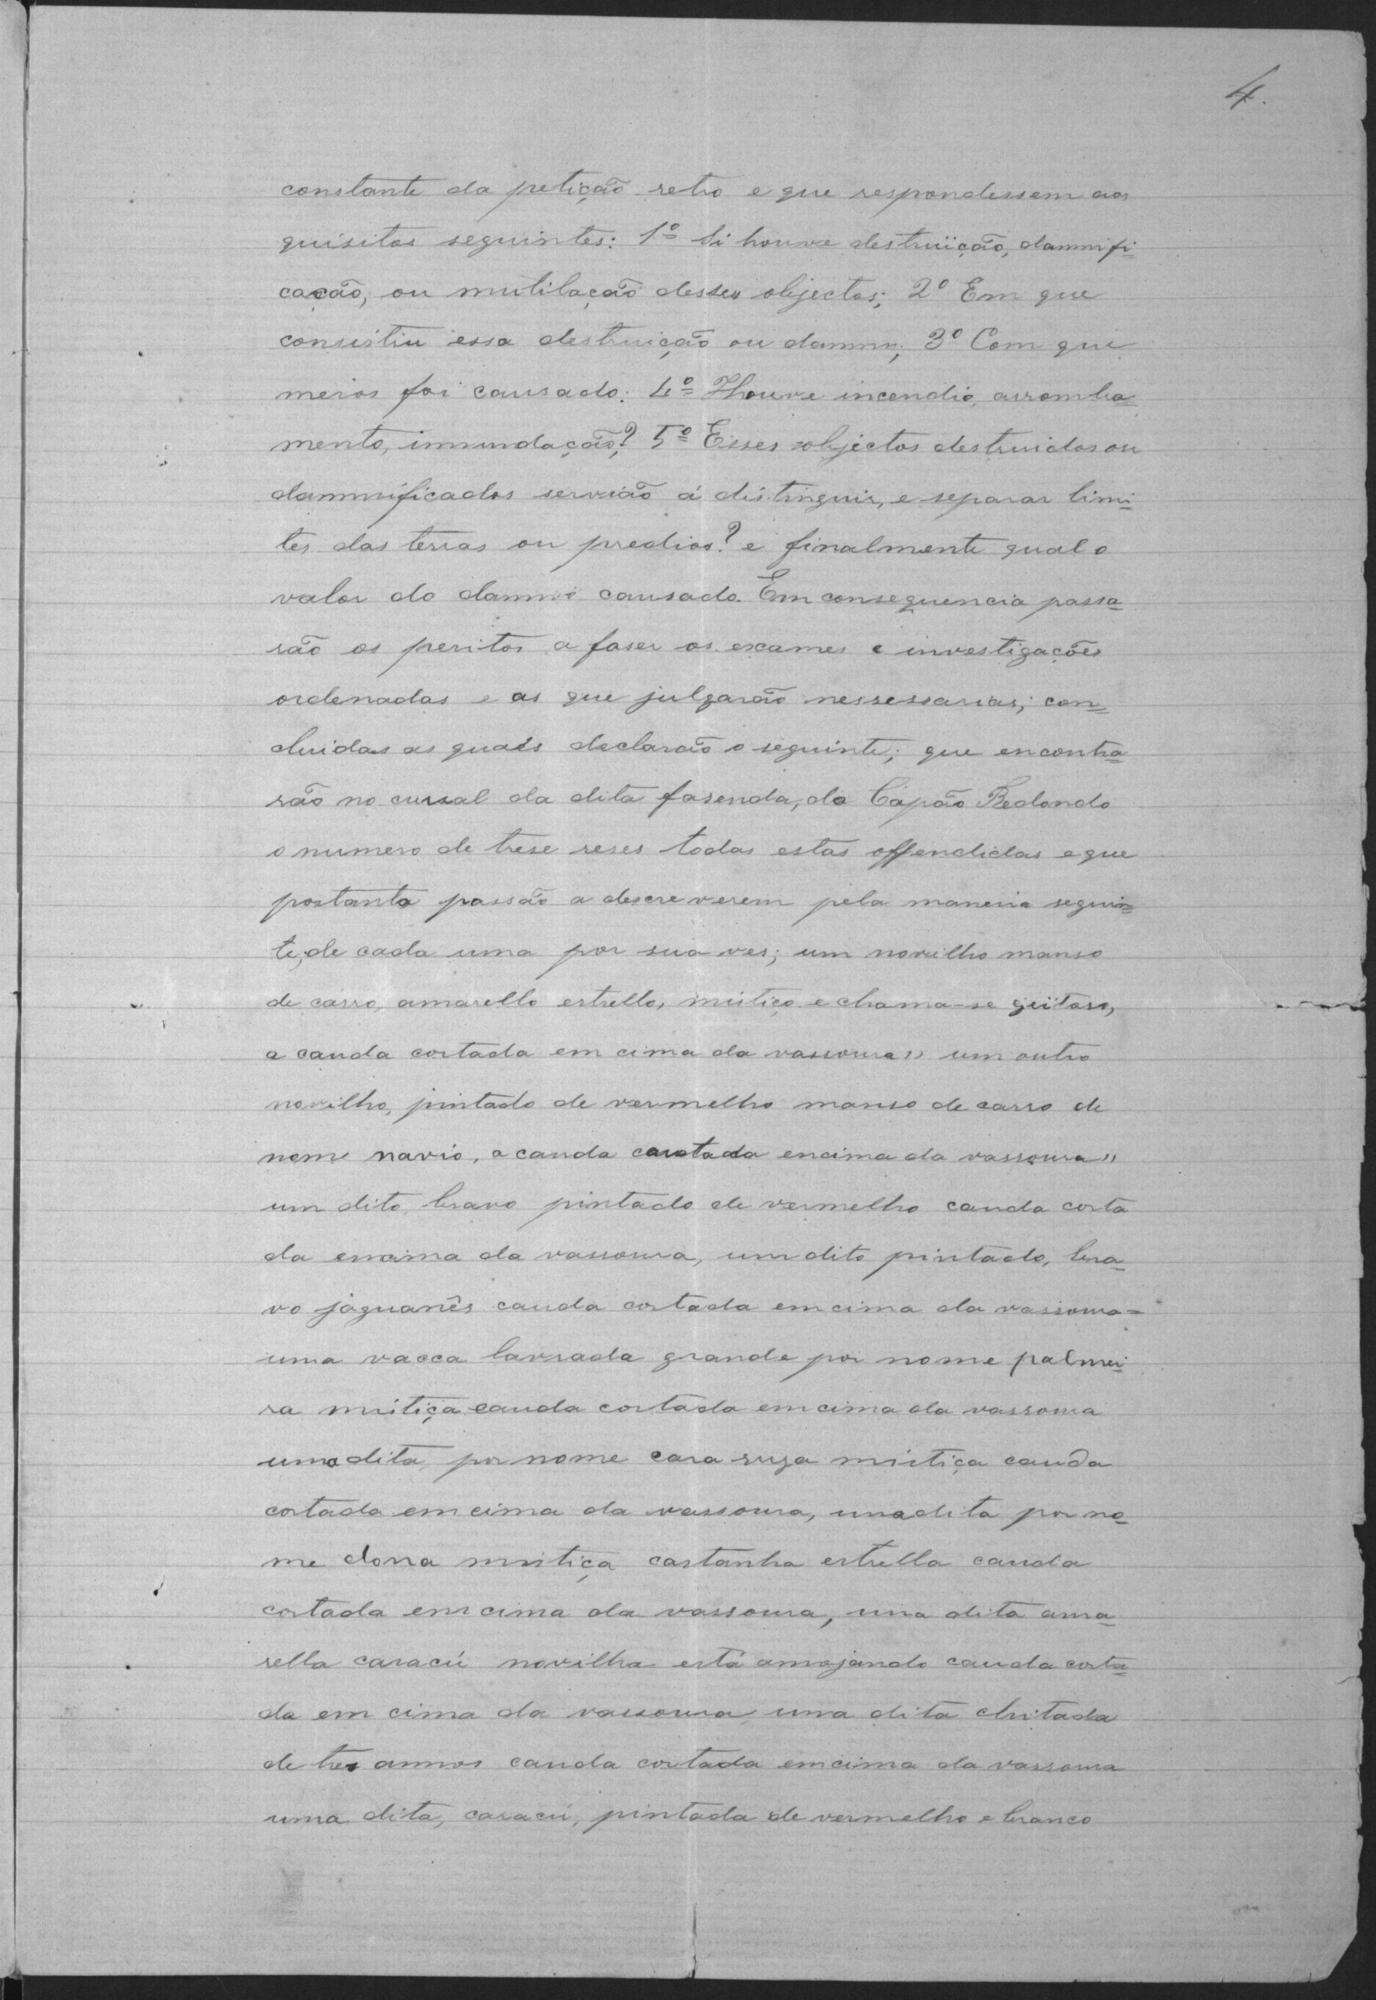 4.
constante da petição retro e que respondessem aos
quisitos seguintes: 1º Si houve destruição, damnifi-
cação, ou mutilação desses objectos; 2º Em que
consistiu essa destruição ou damno; 3º Com que
meios foi causado: 4º Houve incendio, arromba-
mento, innundação? 5º Esses objectos destruidos ou
damnificados servião á distinguir, e separar limi-
tes das terras ou predios? e finalmente qual o
valor do damno causado. Em consequencia passa-
rão os peritos a faser os exames e investigações
ordenadas e as que julgarão nessessarias; con-
cluidas as quaes declarão o seguinte; que encontra-
rão no curral da dita fasenda, do Capão Redondo
o numero de trese reses todas estas offendidas e que
portanto passão a descreverem pela maneira seguin-
te, de cada uma por sua ves; um novilho manso
de carro, amarello estrello, mistiço e chama-se
a cauda cortada em cima da vassoura" um outro
novilho, pintado de vermelho manso de carro de
nome navio, a cauda cortada encima da vassoura"
um dito, bravo pintado de vermelho cauda corta
da emcima da vassoura, um dito pintado, bra-
vo jaguanês cauda cortada emcima da vassoura=
uma vacca lavrada grande por nome palmei-
ra mistiça cauda cortada emcima da vassoura
uma dita, por nome cara suja mistiça cauda
cortada em cima da vassoura, uma dita por no-
me dona mistiça castanha estrella cauda
cortada em cima da vassoura, una dita ama-
rella caracú novilha está amojando cauda corta-
da em cima da vassoura una dita chitada
de tres annos cauda cortada emcima da vassoura
uma dita, caracú, pintada de vermelho e branco